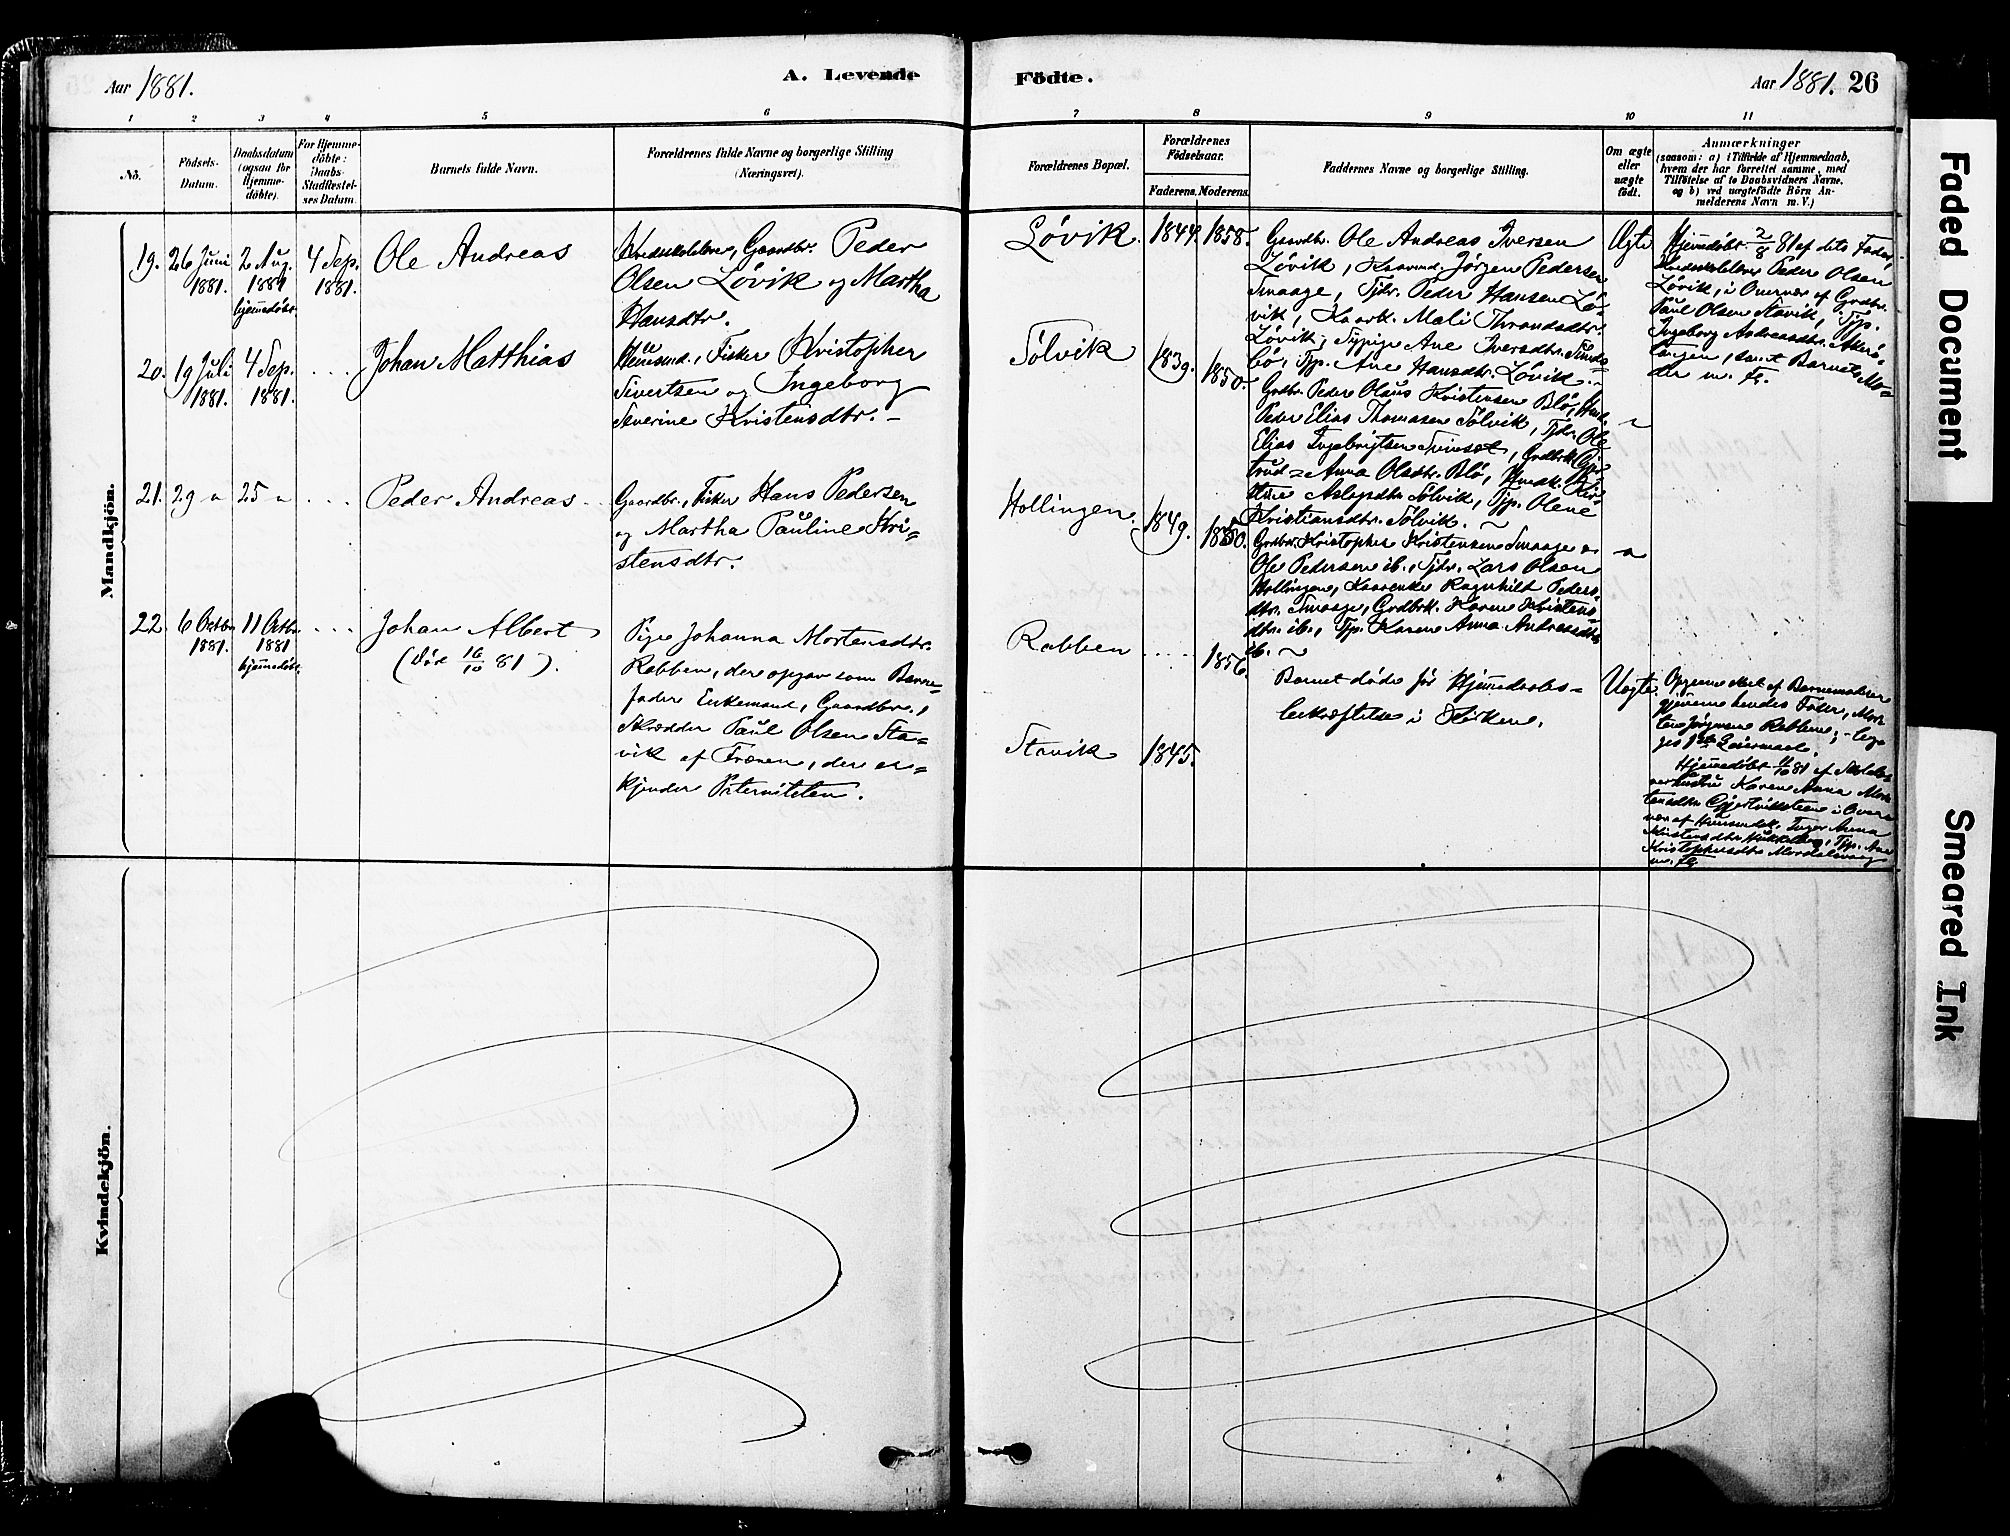 Aar 1881.
A. Levende
Födte.
Aar 1881. 26
1 2 3 4 5 6 7 8 9 10 11
No.
Födsels-Datum.
Daabsdatum (ogsaa for Hjemme-döbte).
For Hjemme-döbte: Daabs-Stadfæstel-ses Datum.
Barnets fulde Navn.
Forældrenes fulde Navne og borgerlige Stilling
(Næringsvei).
Forældrenes Bopæl.
Forældrenes Födselsaar.
Faderens. Moderens.
Faddernes Navne og borgerlige Stilling.
Om ægte eller uægte födt.
Anmærkninger
(saasom: a) i Tilfælde af Hjemmedaab,
hvem der har forrettet samme, med
Tilföielse af to Daabsvidners Navne,
og b) ved uægtefödte Börn An-
melderens Navn m. V.)
Mandkjön.
19. 26 Juni 1881. 2 Aug. 1881 hjemmedøbt. 4 Sep. 1881.
Ole Andreas
Gaardbr. Peder
Olsen Løvik og Martha
Hansdtr.
Løvik. 1844. 1858.
Gaardbr. Ole Andreas Iversen
Løvik, Jørgen Pedersen
Smaage, Tjdr. Peder Hansen Lø-
vik, Mali Throndsdtr.
Løvik, Sypige Ane Iversdtr. Sunds-
bø, Tjp. Ane Hansdtr. Løvik.
Ægte
Hjemdøbt 2/8 81 af dets Fader,
Peder Olsen
Løvik, i Overvær af Grdbr.
Paul Olsen Stavik, Tjp.
Ingeborg Andreasdtr.
samt Barnets Mo-
der m. Fl.
20. 19 Juli 1881. 4 Sep. 1881. . . .
Johan Matthias
Huusmd., Fisker Kristopher
Sivertsen og Ingeborg
Severine Kristensdtr. –
Sølvik 1839. 1850.
Grdbr. Peder Olaus Kristensen Blø,
Peder Elias Thomasen Sølvik, Tjdr. Ole
Elias Ingebrigtsen
Anna Olsdtr. Blø,
Aslepdtr. Sølvik, Tjp. Olene
Kristiansdtr. Sølvik. ~
21. 29 " 25 " . . .
Peder Andreas
Gaardbr., Fisker Hans Pedersen
og Martha Pauline Kri-
stensdtr.
Hollingen. 1849. 1850.
Grdbr. Kristopher Kristensen Smaage og
Ole Pedersen ib., Tjdr. Lars Olsen
Hollingen, Ragnhild Peders-
dtr. Smaage, Grdbrk. Karen Kristens-
dtr. ib., Tjp. Karen Anna Andreasdtr.
ib. ~
22. 6 Octbr. 1881. 11 Octbr. 1881 hjemmedøbt. . . .
Johan Albert
(Død 16/10 81).
Pige Johanna Mortensdtr.
Rabben, der opgav som Barne-
fader Enkemand, Gaardbr.,
Skrædder Paul Olsen Sta-
vik af Frænen, der er-
kjender Paterniteten.
Rabben . . . . 1856.
Stavik 1845.
Barnet døde før Hjemdaabs-
bekræftelse i Kirken.
Uægte.
Opgivne Med af Barnemoderen
gjennem hendes Fader, Mor-
ten Jørgensen Rabben; –
Leiermaal.
Hjemmedøbt 11/10 81 af
Karen Anna Mor-
tensdtr. i Over-
vær af Inger Anna
Kristensdtr. Tjp. Ane
Kristophersdtr.
m. Fl.
Kvindekjön.
Faded Document
Smeared Ink